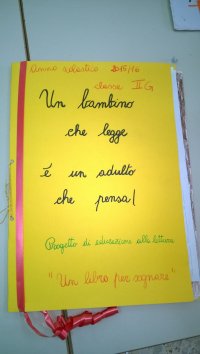 Anno scolastico 2015/16
classe II G
Un bambino
che legge
è un adulto
che pensa!
Progetto di educazione alla lettura
"Un libro per sognare"